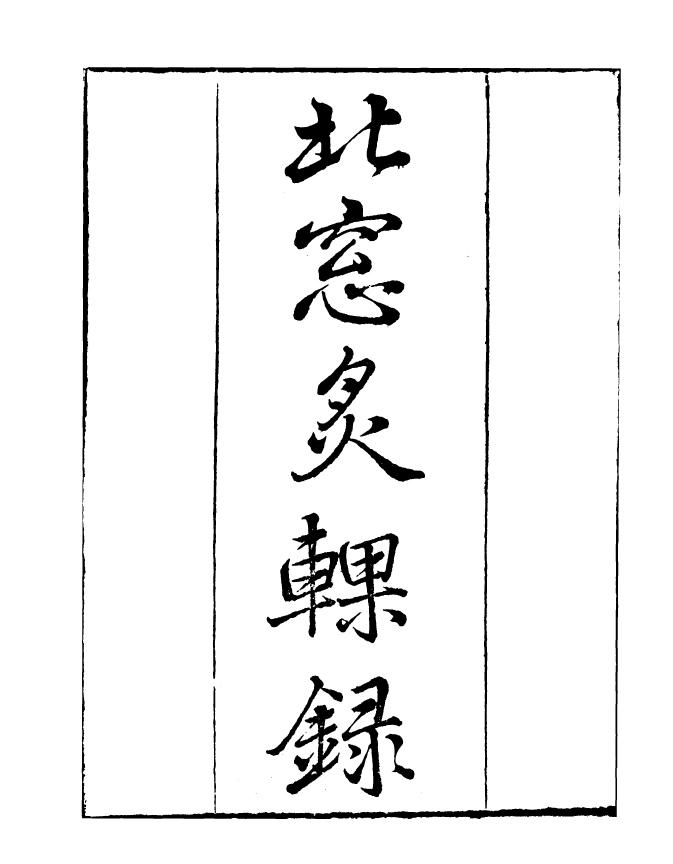 北窓炙輠録